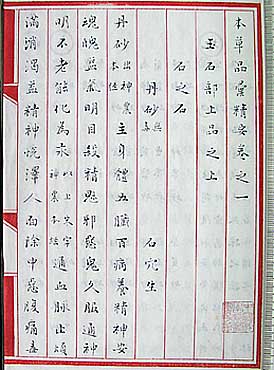 本草品彙精要卷之一
玉石部上品之上
石之石
丹砂 無毒 石穴生
丹砂 出神農本經 主身體五臟百病養精神安
魂魄益氣明目殺精魅邪惡鬼久服通神
明不老能化為汞 以上朱字神農本經 通血脉止煩
滿消渴益精神悅澤人面除中惡腹痛毒